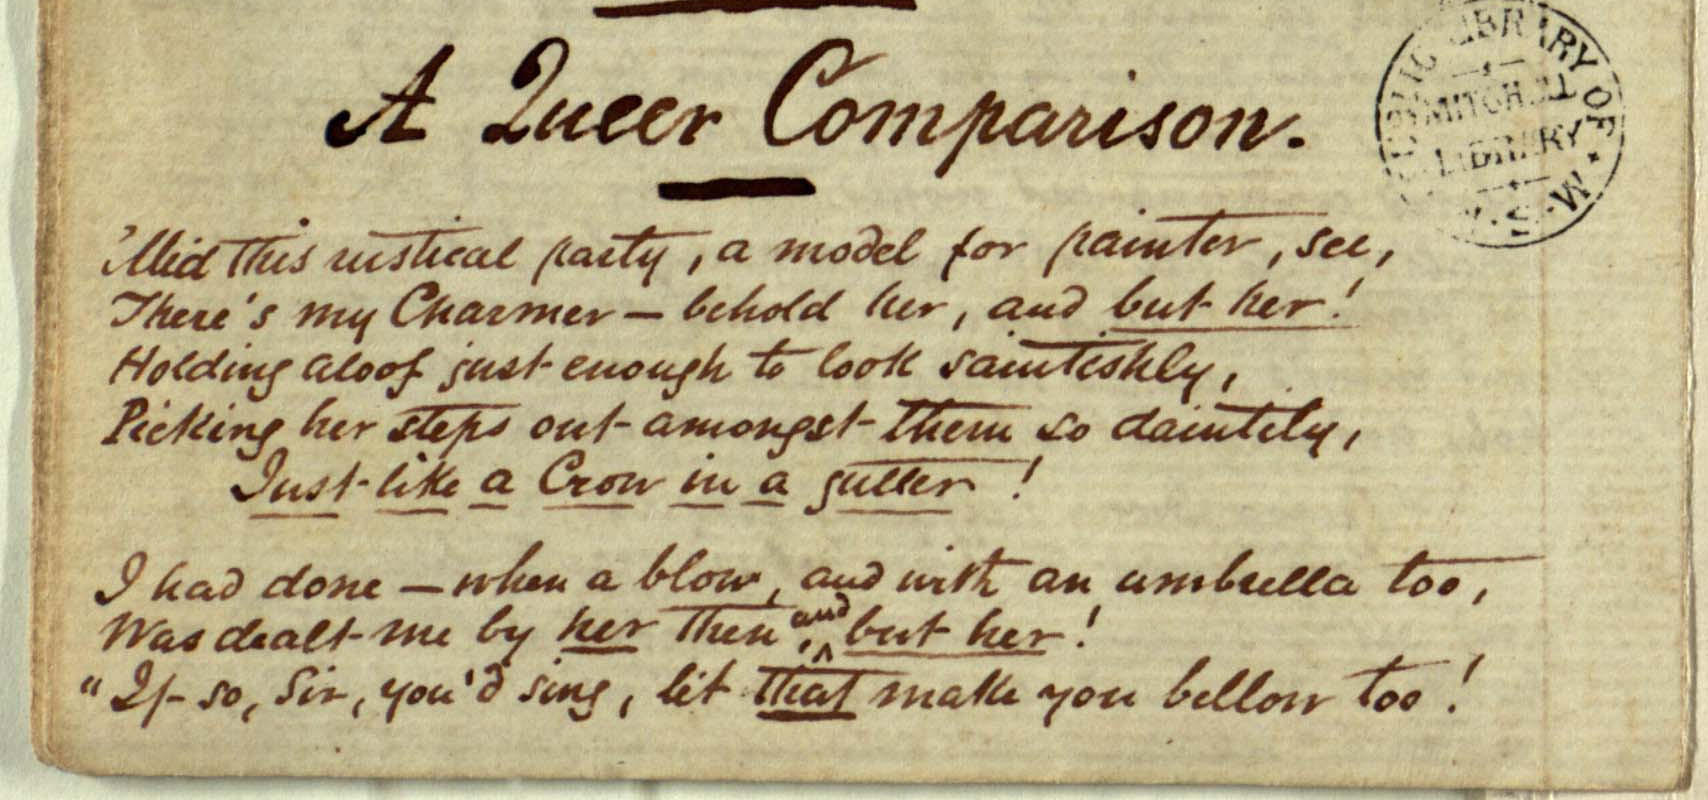 A Queer Comparison.
PUBLIC LIBRARY OF N.S.W.
MITCHELL
LIBRARY
'Mid this rustical party, a model for painter, see,
There's my Charmer — behold her, and but her!
Holding aloof just enough to look saintishly,
Picking her steps out amongst them so daintily,
Just like a Crow in a gutter!
I had done — when a blow, and with an umbrella too,
Was dealt me by her then, and but her!
"If so, Sir, you'd sing, let that make you bellow too!